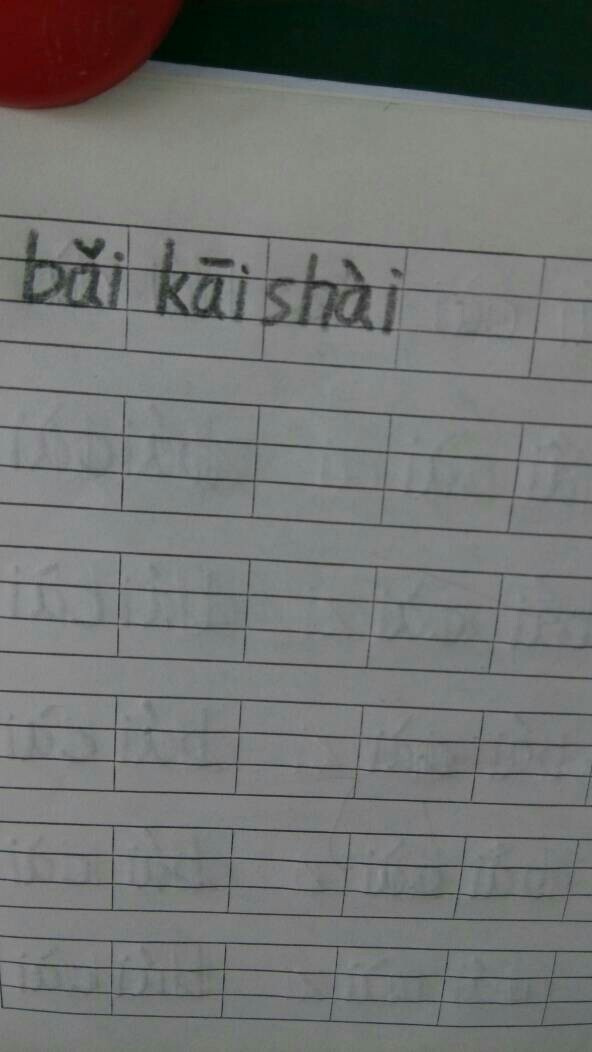 bǎi kāi shài